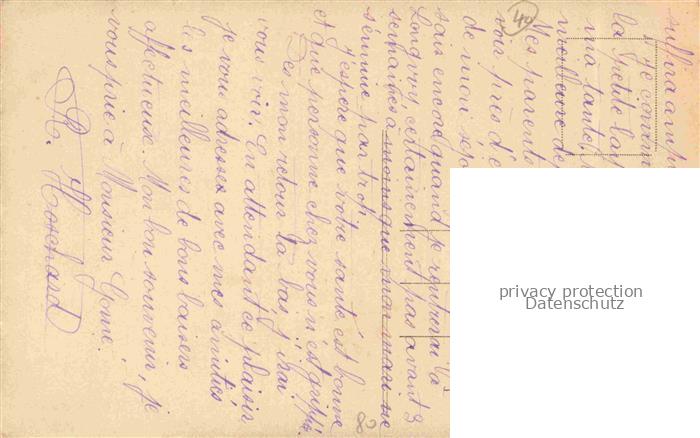 suffira amp
Je connai
la petite lar
ma tante.
meilleure de
Mes parents
vois près d'e
de mon séjo
sais encore quand je rentrerai à
Longwy certainement pas avant 3
semaines à moins que mon mari ne
vienne pas tout
J'espère que votre santé est bonne
et que personne chez vous n'est grippé.
Dès mon retour là bas, j'irai
vous voir. En attendant ce plaisir
je vous adresse avec mes amitiés
les meilleures de bons baisers
affectueux. Mon bon souvenir, je
vous prie à Monsieur
40
80
privacy protection
Datenschutz